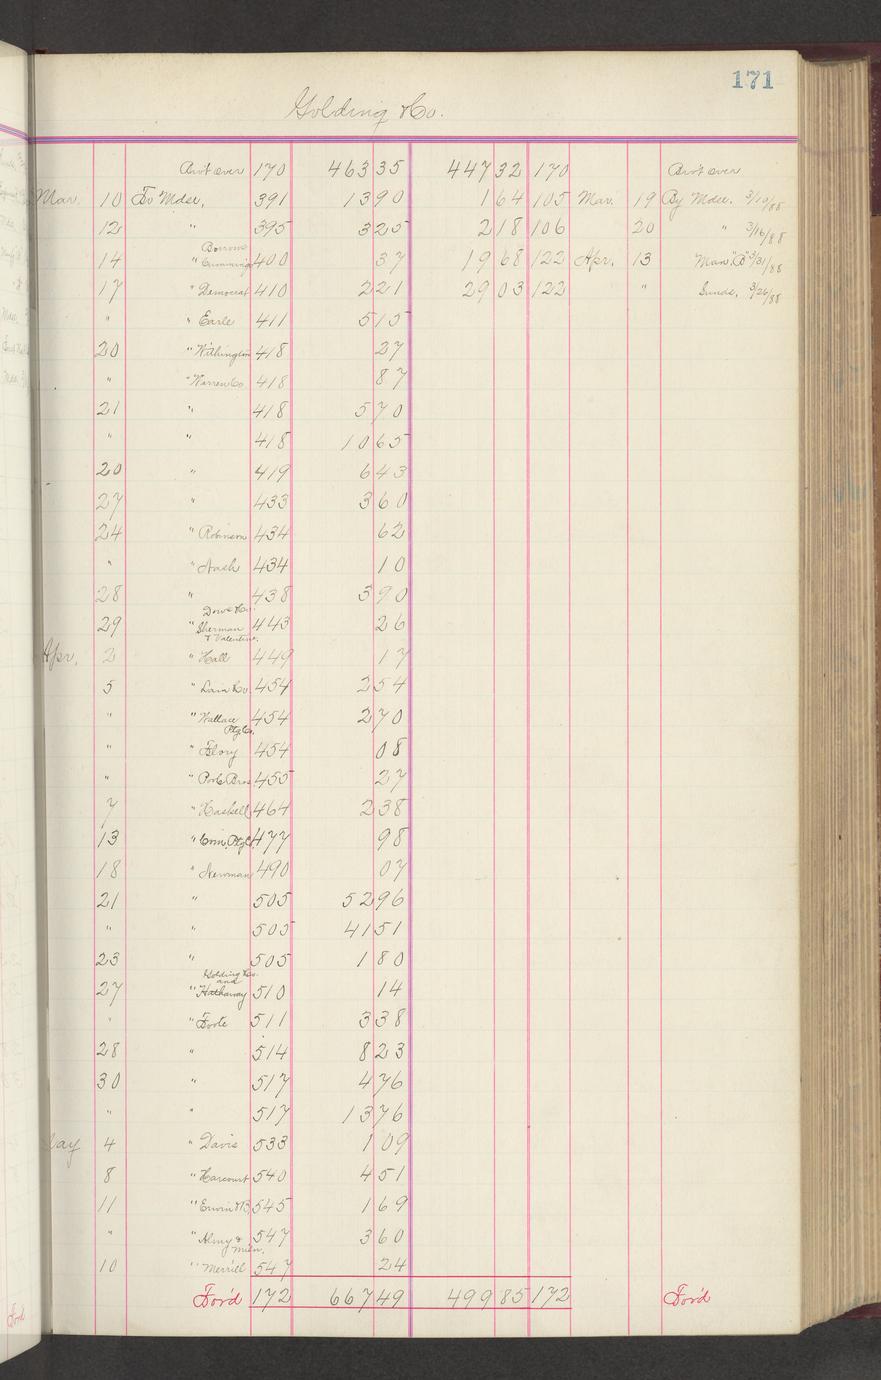 171
Golding & Co.
Brot over 170 463 35 447 32 170 Brot over
Mar. 10 To Mdse, 391 13 90 1 64 105 Mar. 19 By Mdse. 3/10/88
12 " 395 3 25 2 18 106 20 " 3/16/88
Borrows
14 " Cummings 400 37 19 68 122 Apr. 13 Man. "B" 3/31/88
17 " Democrat 410 2 21 29 03 122 " Sunds. 3/26/88
" " Earle 411 5 15
20 " Withington 418 27
" " Warren Co 418 87
21 " 418 5 70
" " 418 10 65
20 " 419 6 43
27 " 433 3 60
24 " Robinson 434 62
" " Nash 434 10
28 " 438 3 90
Dows & Co.
29 " Sherman 443 26
& Valentine.
Apr. 2 " Hall 449 17
5 " Lain & Co. 454 2 54
" " Wallace 454 2 70
Ptg. Co.
" " Flory 454 08
" " Poole Bros. 455 27
7 " Haskell 464 2 38
13 " Com. Ptg Co. 477 98
18 " Newman 490 07
21 " 505 52 96
" " 505 41 51
23 " 505 1 80
Golding & Co.
and
27 " Hathaway 510 14
" " Foote 511 3 38
28 " 514 8 23
30 " 517 4 76
" " 517 13 76
ay 4 " Davis 533 1 09
8 " Harcourt 540 4 51
11 " Erwin & B. 545 1 69
" " Almy & 547 3 60
Miln.
10 " Merrill 547 24
For'd 172 667 49 499 85 172 For'd